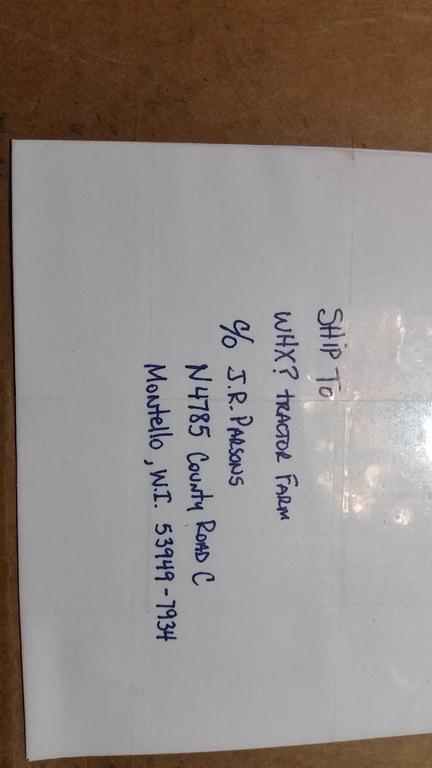 SHiP To
WHX? TRACTOR FARM
c/o J.R. PARSONS
N4785 County Road C
Montello, W.I. 53949-7934